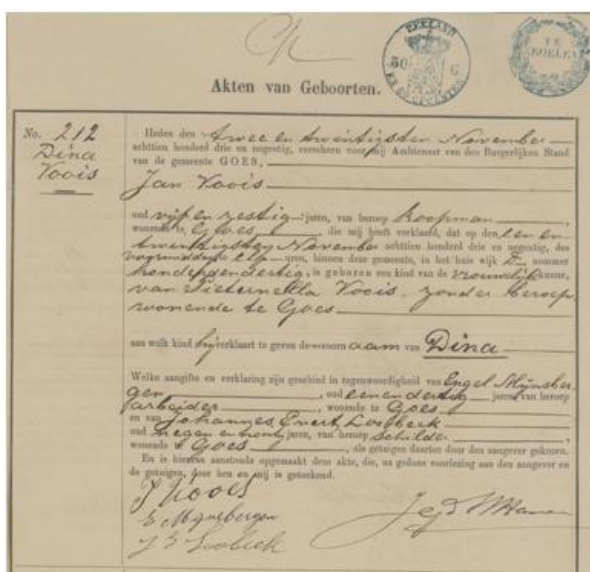 ZEELAND
50 C
EN 38 OPCENTEN
TE
ZEGELEN
Akten van Geboorten.
No. 212
Dina
Voois
Heden den twee en twintigsten November
achttien honderd drie en negentig, verscheen voor mij Ambtenaar van den Burgerlijken Stand
van de gemeente GOES,
Jan Voois
oud vijf en zestig jaren, van beroep koopman,
wonende te Goes, die mij heeft verklaard, dat op den een en
twintigsten November achttien honderd drie en negentig, des
voormiddags elf uren, binnen deze gemeente, in het huis wijk D nommer
honderd en dertig, is geboren een kind van de vrouwelijke kunne,
van Pieternella Voois, zonder beroep,
wonende te Goes
aan welk kind hij verklaart te geven de voornaam van Dina
Welke aangifte en verklaring zijn geschied in tegenwoordigheid van Engel Mijnsber-
gen, oud een en dertig jaren, van beroep
arbeider, wonende te Goes
en van Johannes Evert Loobeek
oud negen en jaren, van beroep schilder,
wonende te Goes, als getuigen daartoe door den aangever gekozen.
En is hiervan aanstonds opgemaakt deze akte, die, na gedane voorlezing aan den aangever en
de getuigen, door hen en mij is geteekend.
J Voois
E Mijnsbergen
J E Loobeek